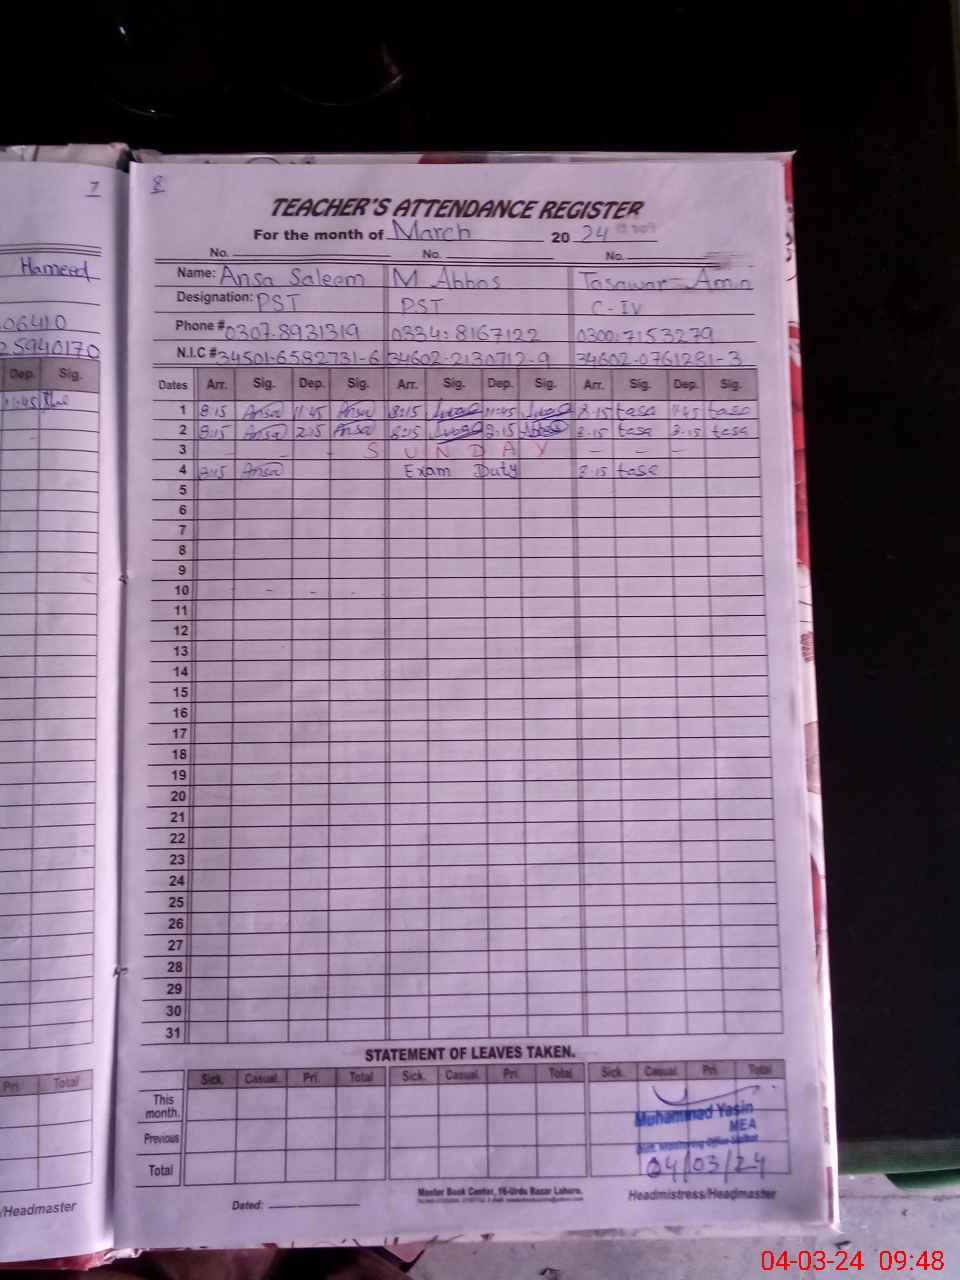 7
Hameed
06410
25940170
Dep. Sig.
11:45
Pri. Total
/Headmaster
8
TEACHER'S ATTENDANCE REGISTER
For the month of March 20 24
No. No. No.
Name: Ansa Saleem M Abbas Tasawar Amin
Designation: PST PST C-IV
Phone # 0307-8931319 0334:8167122 0300:7153279
N.I.C # 34501-6582731-6 34602-2130712-9 34602-0761281-3
Dates Arr. Sig. Dep. Sig. Arr. Sig. Dep. Sig. Arr. Sig. Dep. Sig.
1 8:15 Ansa 11:45 Ansa 8:15 11:45 8:15 tasa 11:45 tasa
2 8:15 Ansa 2:15 Ansa 8:15 2:15 Abbas 8:15 tasa 2:15 tasa
3 - - - S U N D A Y - - -
4 8:15 Ansa Exam Duty 8:15 tasa
5
6
7
8
9
10 - - -
11
12
13
14
15
16
17
18
19
20
21
22
23
24
25
26
27
28
29
30
31
STATEMENT OF LEAVES TAKEN.
Sick. Casual. Pri. Total Sick. Casual. Pri. Total Sick. Casual. Pri. Total
This month.
Previous
Total
Muhammad Yasin
MEA
Distt. Monitoring Officer Sialkot
04/03/24
Dated:
Master Book Center, 16-Urdu Bazar Lahore.
Headmistress/Headmaster
04-03-24 09:48